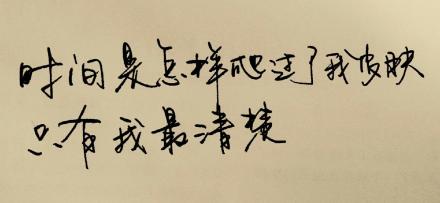 时间是怎样爬过了我皮肤
只有我最清楚